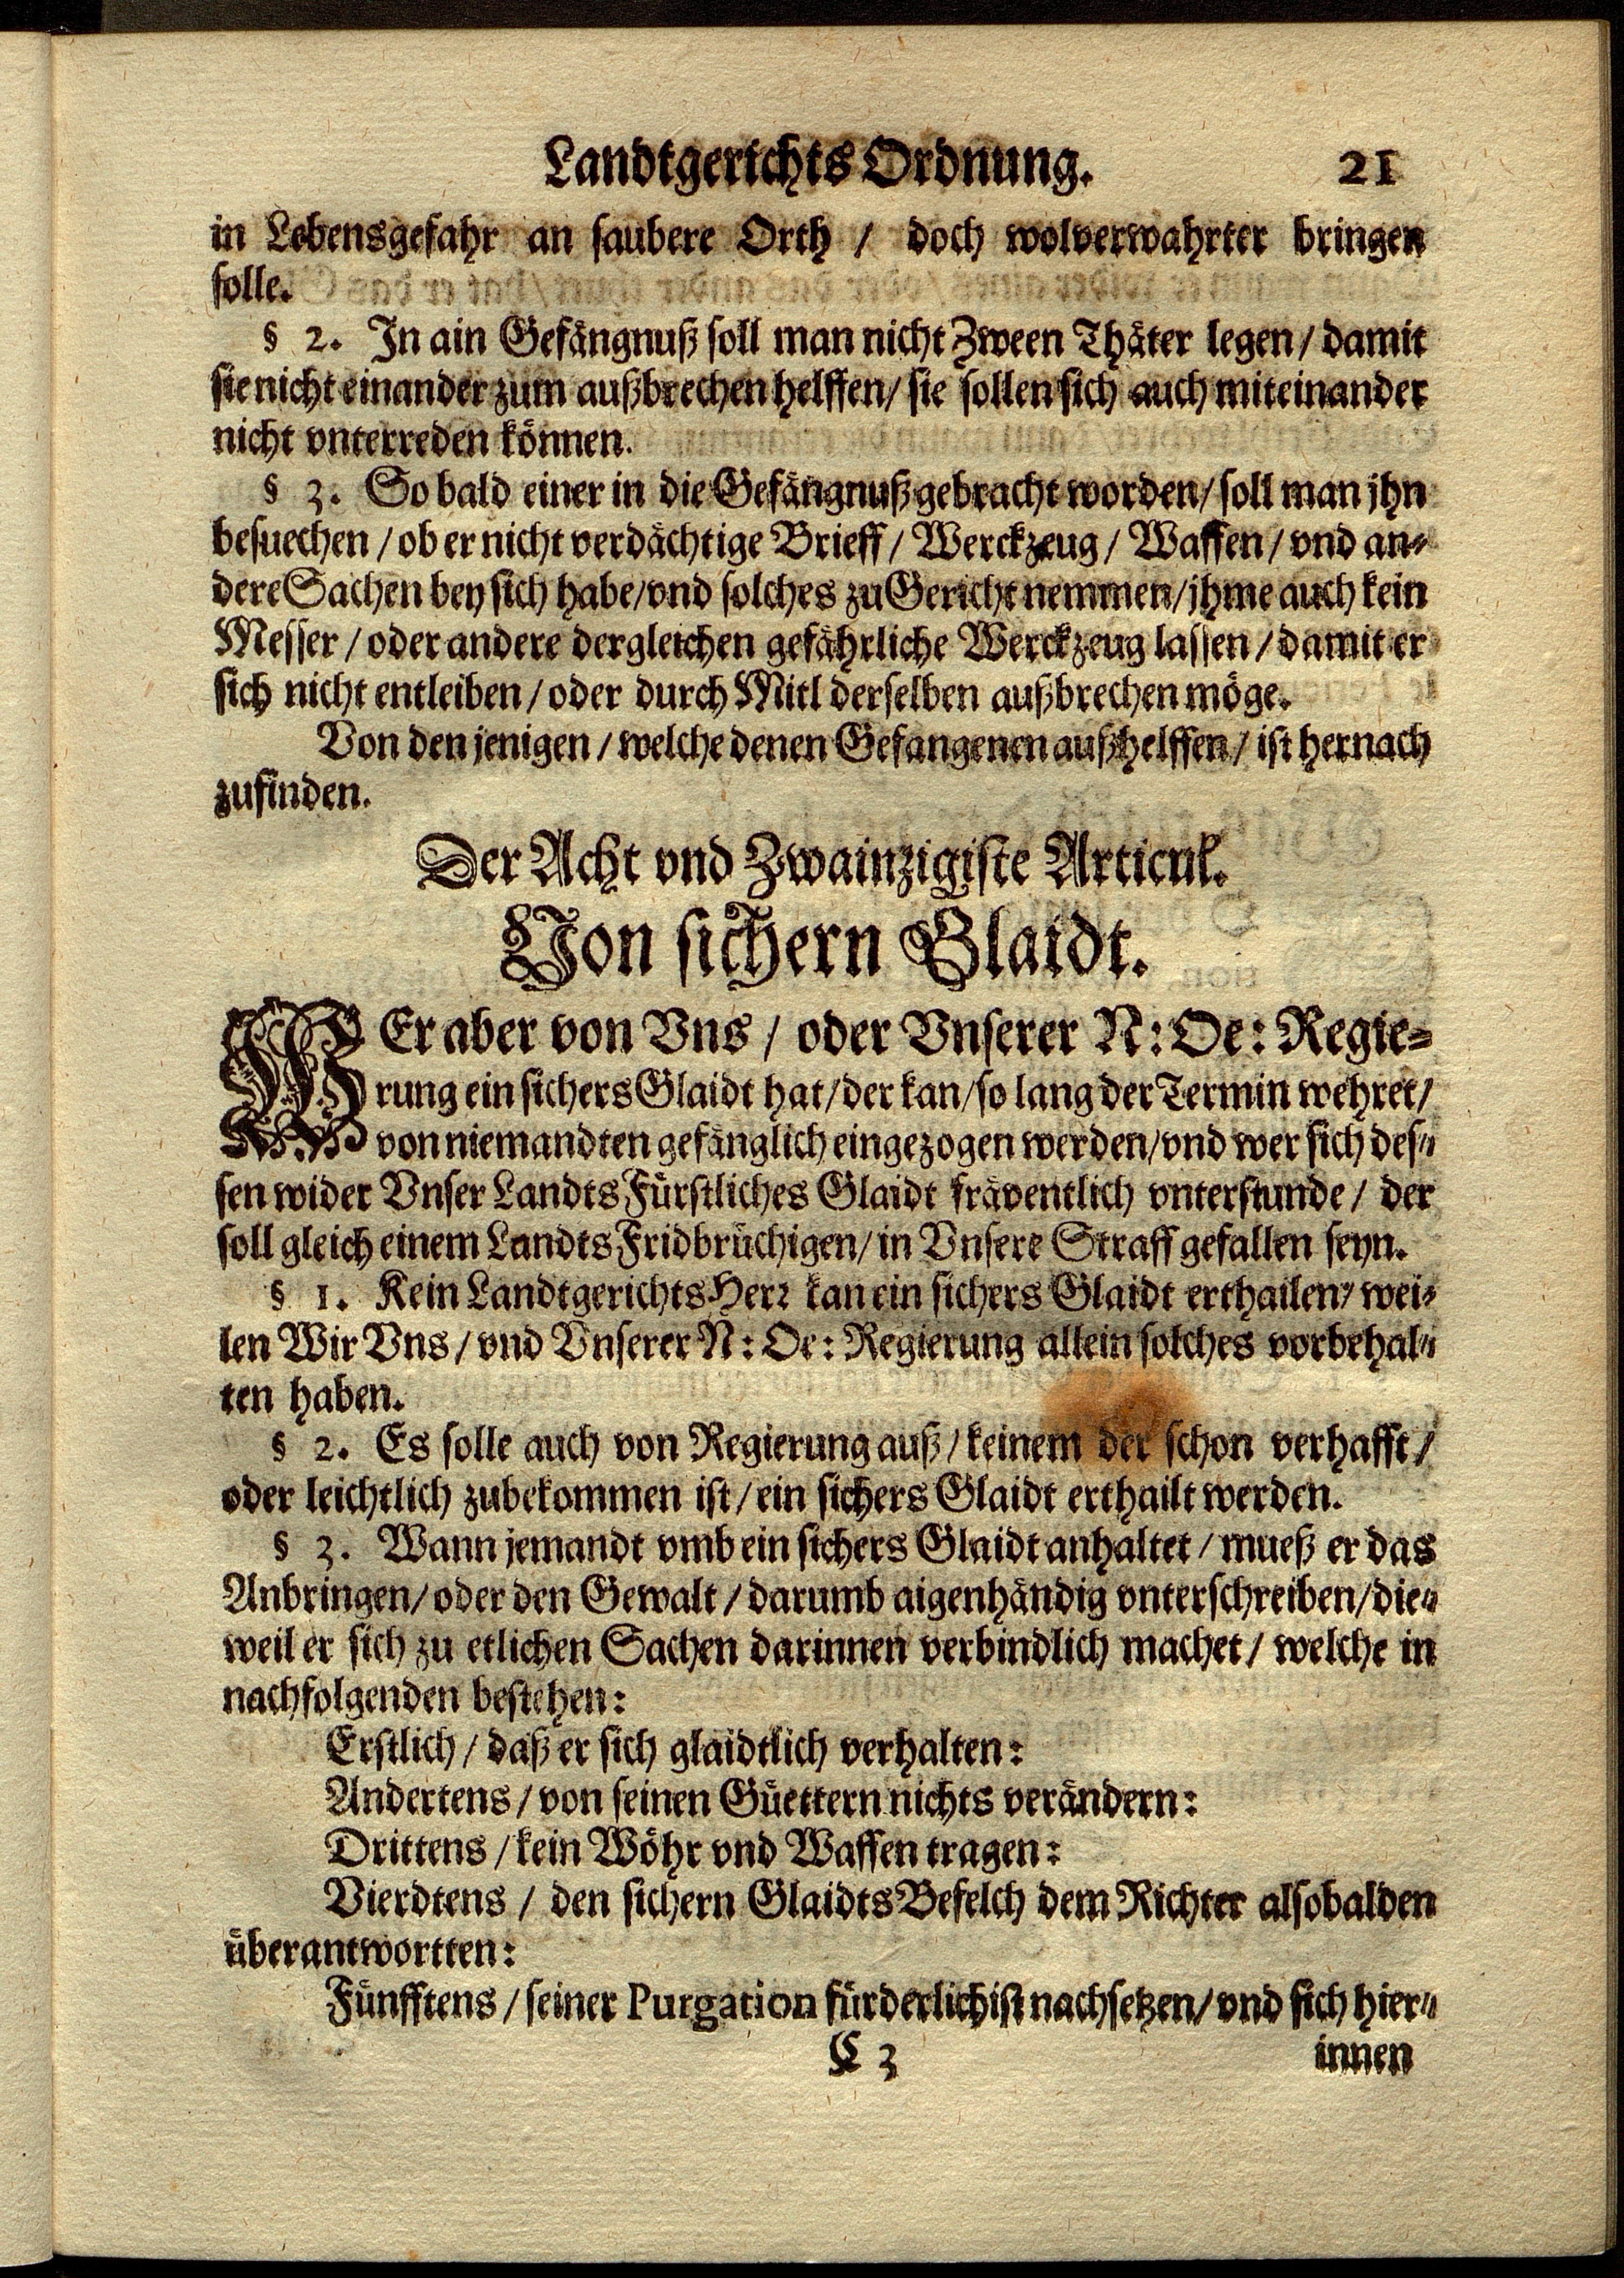 Landtgerichts Ordnung. 21
in Lebensgefahr an saubere Orth / doch wolverwahrter bringen
solle.
§ 2. In ain Gefängnuß soll man nicht Zween Thäter legen / damit
sie nicht einander zum außbrechen helffen / sie sollen sich auch miteinander
nicht vnterreden können.
§ 3. So bald einer in die Gefängnuß gebracht worden / soll man jhn
besuechen / ob er nicht verdächtige Brieff / Werckzeug / Waffen / vnd an-
dere Sachen bey sich habe / vnd solches zu Gericht nemmen / jhme auch kein
Messer / oder andere dergleichen gefährliche Werckzeug lassen / damit er
sich nicht entleiben / oder durch Mitl derselben außbrechen möge.
Von den jenigen / welche denen Gefangenen außhelffen / ist hernach
zufinden.
Der Acht vnd Zwainzigiste Articul.
Von sichern Glaidt.
WEr aber von Vns / oder Vnserer N: Oe: Regie-
rung ein sichers Glaidt hat / der kan / so lang der Termin wehret /
von niemandten gefänglich eingezogen werden / vnd wer sich des-
sen wider Vnser LandtsFürstliches Glaidt fräventlich vnterstunde / der
soll gleich einem LandtsFridbrüchigen / in Vnsere Straff gefallen seyn.
§ 1. Kein LandtgerichtsHerr kan ein sichers Glaidt erthailen / wei-
len Wir Vns / vnd Vnserer N: Oe: Regierung allein solches vorbehal-
ten haben.
§ 2. Es solle auch von Regierung auß / keinem der schon verhafft /
oder leichtlich zubekommen ist / ein sichers Glaidt erthailt werden.
§ 3. Wann jemandt vmb ein sichers Glaidt anhaltet / mueß er das
Anbringen / oder den Gewalt / darumb aigenhändig vnterschreiben / die-
weil er sich zu etlichen Sachen darinnen verbindlich machet / welche in
nachfolgenden bestehen:
Erstlich / daß er sich glaidtlich verhalten:
Andertens / von seinen Güettern nichts verändern:
Drittens / kein Wöhr vnd Waffen tragen:
Vierdtens / den sichern GlaidtsBefelch dem Richter alsobalden
überantwortten:
Fünfftens / seiner Purgation fürderlichist nachsetzen / vnd sich hier-
C 3 innen